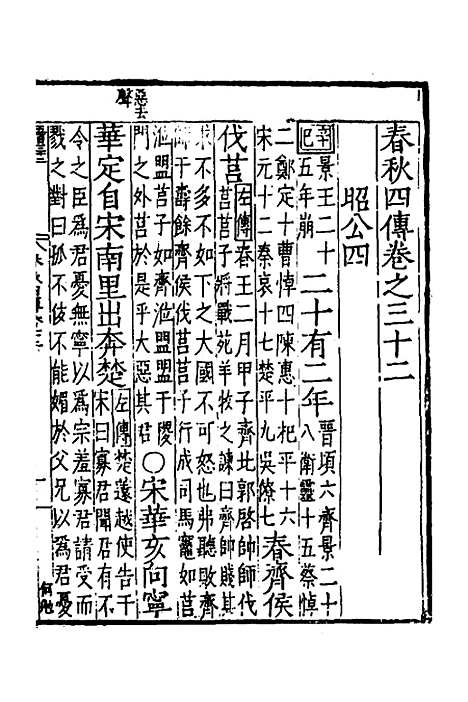 春秋四傳卷之三十二
昭公四
辛巳景王二十
五年崩
二十有二年
晉頃六齊景二十
八衛靈十五蔡悼
二鄭定十曹悼四陳惠十杞平十六
宋元十二秦哀十七楚平九吳僚七
春齊侯
伐莒
左傳春王二月甲子齊北郭啓帥師伐
莒莒子將戰苑羊牧之諫曰齊帥賤其
求不多不如下之大國不可怒也弗聽敗齊
師于壽餘齊侯伐莒莒子行成司馬竈如莒
涖盟莒子如齊涖盟盟于稷
門之外莒於是乎大惡其君
惡去
聲
〇宋華亥向寧
華定自宋南里出奔楚
左傳楚薳越使告于
宋曰寡君聞君有不
令之臣爲君憂無寧以爲宗羞寡君請受而
戮之對曰孤不佞不能媚於父兄以爲君憂